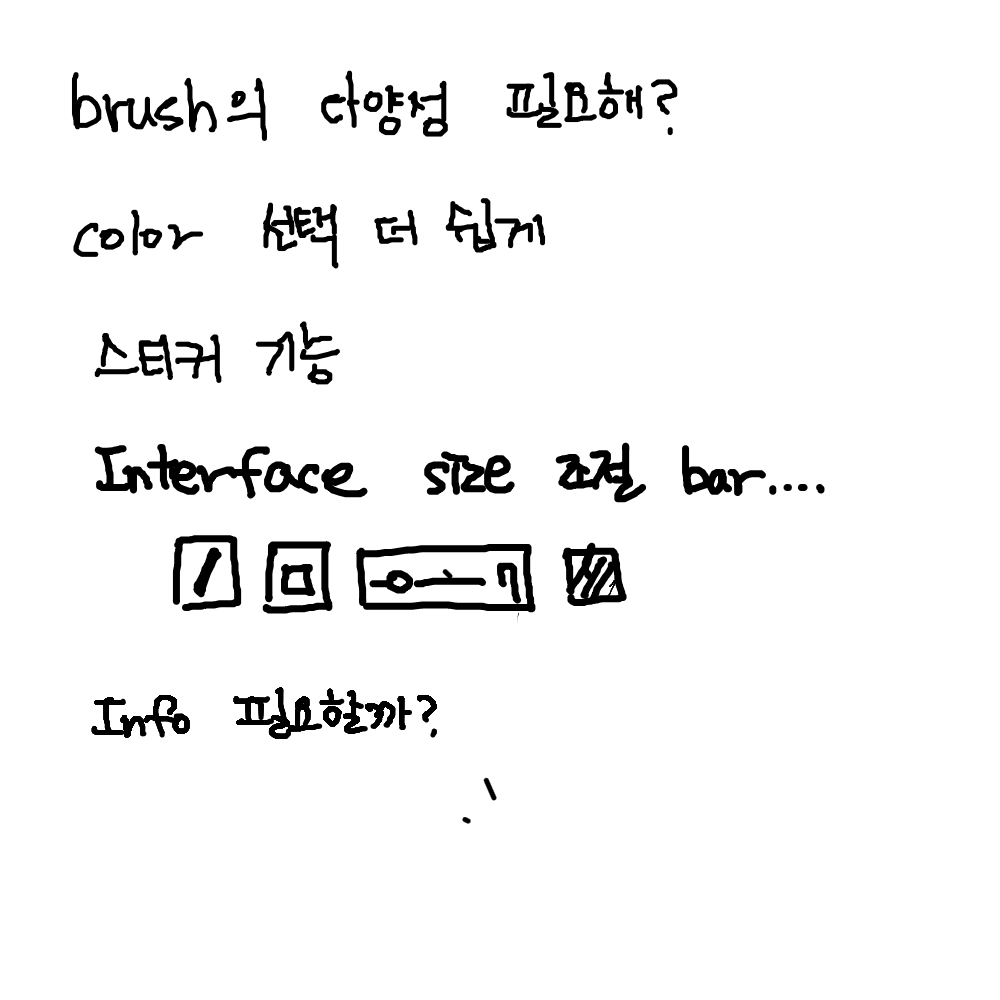 brush의 다양성 필요해?
color 선택 더 쉽게
스티커 기능
Interface size 조절 bar....
Info 필요할까?